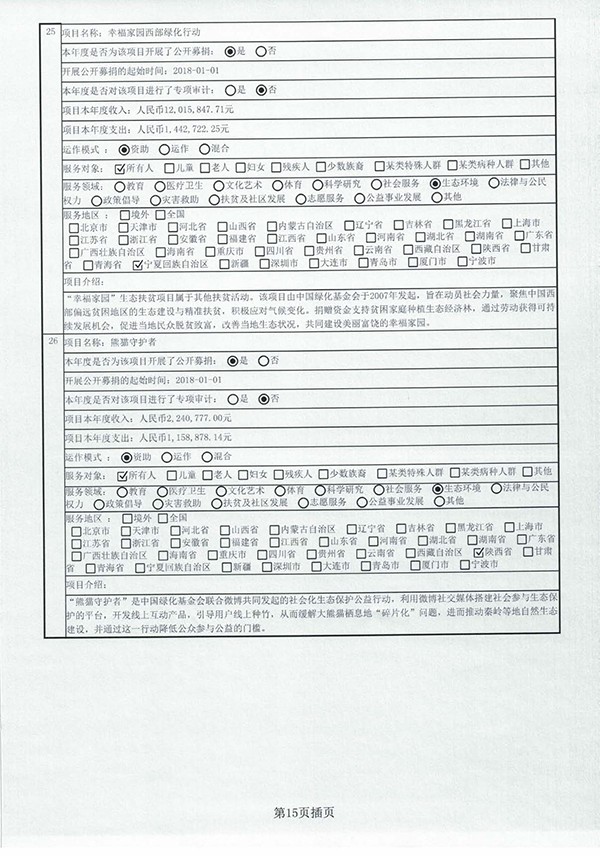 25 项目名称：幸福家园西部绿化行动
本年度是否为该项目开展了公开募捐： 是 否
开展公开募捐的起始时间：2018-01-01
本年度是否对该项目进行了专项审计： 是 否
项目本年度收入：人民币12,015,847.71元
项目本年度支出：人民币1,442,722.25元
运作模式 ： 资助 运作 混合
服务对象： 所有人 儿童 老人 妇女 残疾人 少数族裔 某类特殊人群 某类病种人群 其他
服务领域： 教育 医疗卫生 文化艺术 体育 科学研究 社会服务 生态环境 法律与公民
权力 政策倡导 灾害救助 扶贫及社区发展 志愿服务 公益事业发展 其他
服务地区 ： 境外 全国
北京市 天津市 河北省 山西省 内蒙古自治区 辽宁省 吉林省 黑龙江省 上海市
江苏省 浙江省 安徽省 福建省 江西省 山东省 河南省 湖北省 湖南省 广东省
广西壮族自治区 海南省 重庆市 四川省 贵州省 云南省 西藏自治区 陕西省 甘肃
省 青海省 宁夏回族自治区 新疆 深圳市 大连市 青岛市 厦门市 宁波市
项目介绍：
“幸福家园”生态扶贫项目属于其他扶贫活动。该项目由中国绿化基金会于2007年发起，旨在动员社会力量，聚焦中国西
部偏远贫困地区的生态建设与精准扶贫，积极应对气候变化。捐赠资金支持贫困家庭种植生态经济林，通过劳动获得可持
续发展机会，促进当地民众脱贫致富，改善当地生态状况，共同建设美丽富饶的幸福家园。
26 项目名称：熊猫守护者
本年度是否为该项目开展了公开募捐： 是 否
开展公开募捐的起始时间：2018-01-01
本年度是否对该项目进行了专项审计： 是 否
项目本年度收入：人民币2,240,777.00元
项目本年度支出：人民币1,158,878.14元
运作模式 ： 资助 运作 混合
服务对象： 所有人 儿童 老人 妇女 残疾人 少数族裔 某类特殊人群 某类病种人群 其他
服务领域： 教育 医疗卫生 文化艺术 体育 科学研究 社会服务 生态环境 法律与公民
权力 政策倡导 灾害救助 扶贫及社区发展 志愿服务 公益事业发展 其他
服务地区 ： 境外 全国
北京市 天津市 河北省 山西省 内蒙古自治区 辽宁省 吉林省 黑龙江省 上海市
江苏省 浙江省 安徽省 福建省 江西省 山东省 河南省 湖北省 湖南省 广东省
广西壮族自治区 海南省 重庆市 四川省 贵州省 云南省 西藏自治区 陕西省 甘肃
省 青海省 宁夏回族自治区 新疆 深圳市 大连市 青岛市 厦门市 宁波市
项目介绍：
“熊猫守护者”是中国绿化基金会联合微博共同发起的社会化生态保护公益行动，利用微博社交媒体搭建社会参与生态保
护的平台，开发线上互动产品，引导用户线上种竹，从而缓解大熊猫栖息地“碎片化”问题，进而推动秦岭等地自然生态
建设，并通过这一行动降低公众参与公益的门槛。
第15页插页